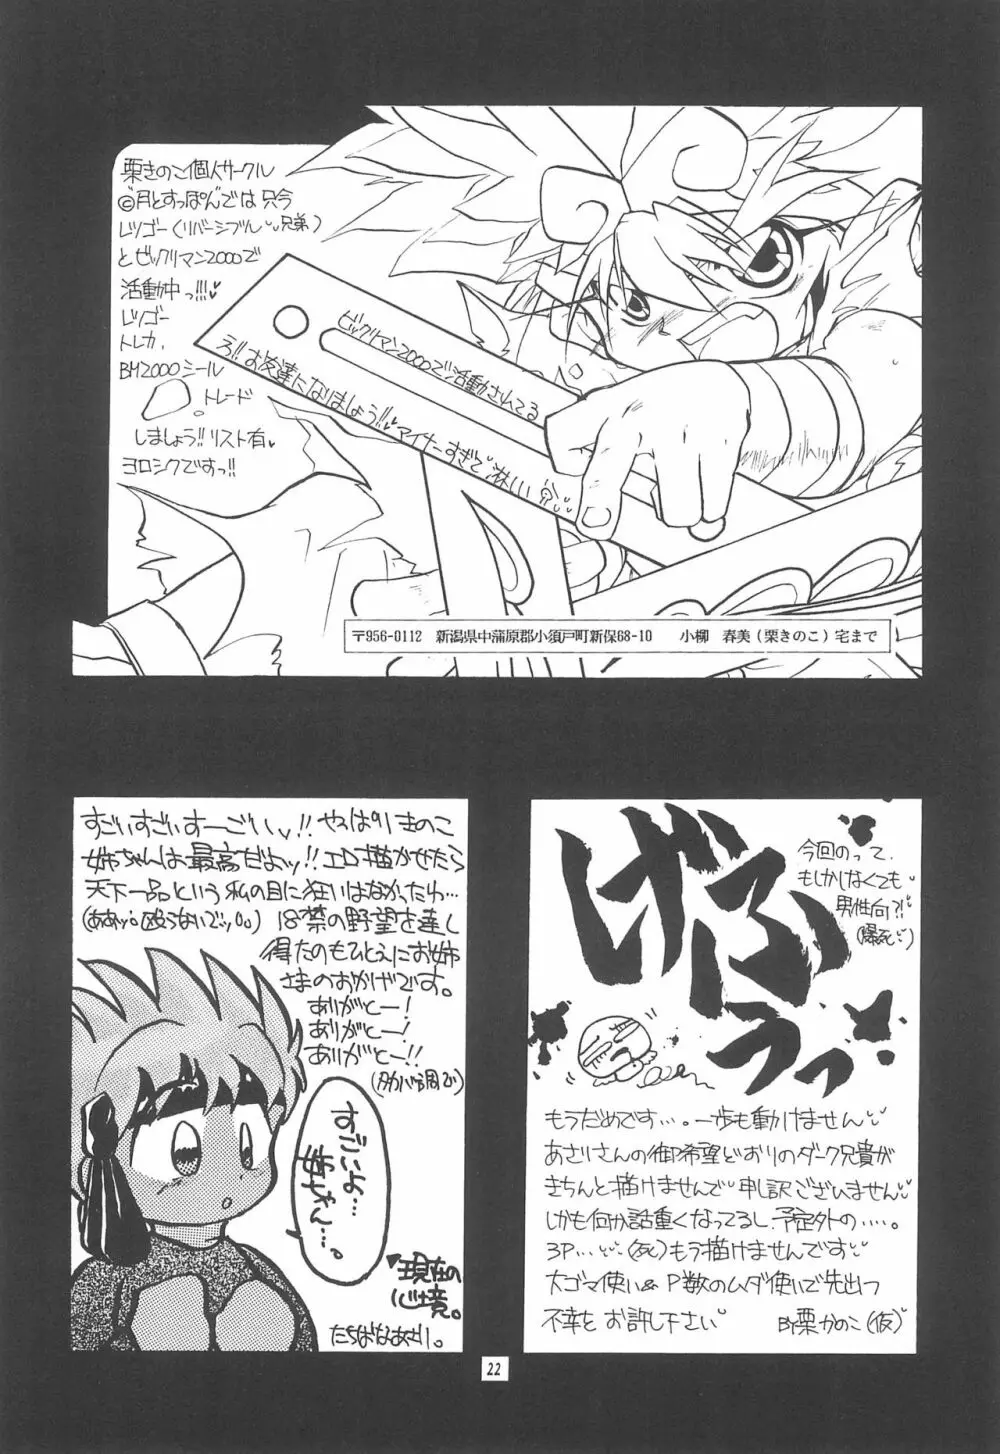 栗きのこ個人サークル
©月とすっぽんでは只今
レツゴー(リバーシブル、兄弟)
とビックリマン2000で
活動中っ!!!
レツゴー
トレカ,
BM2000シール
トレード
しましょう!!リスト有
ヨロシクですっ!!
ビックリマン2000で活動されてる
え!!お友達になりましょう!!マイナーすぎて淋しい
〒956-0112 新潟県中蒲原郡小須戸町新保68-10 小柳 春美(栗きのこ)宅まで
すごいすごいすーごいッ!!やっぱりきのこ
姉ちゃんは最高だよッ!!エロ描かせたら
天下一品という私の目に狂いはなかったわ…
(ああッ。殴らないでッ。。)18禁の野望を達し
得たのもひとえにお姉
さまのおかげです。
ありがとー!
ありがとー!
ありがとー!!
すごいよ…
姉ちゃん…。
現在の
心境。
たちばなあさり。
げふうっ
今回のって、
もしかしなくても
男性向?!
(爆死)
もうだめです…。一歩も動けません
あさりさんの御希望どおりのダーク兄貴が
きちんと描けませんで申し訳ございません
しかも何か話重くなってるし、予定外の…。
3P…(死)もう描けませんです
大ゴマ使い&P数のムダ使いで先出つ
不幸をお許し下さい
BY栗かのこ(仮)
22